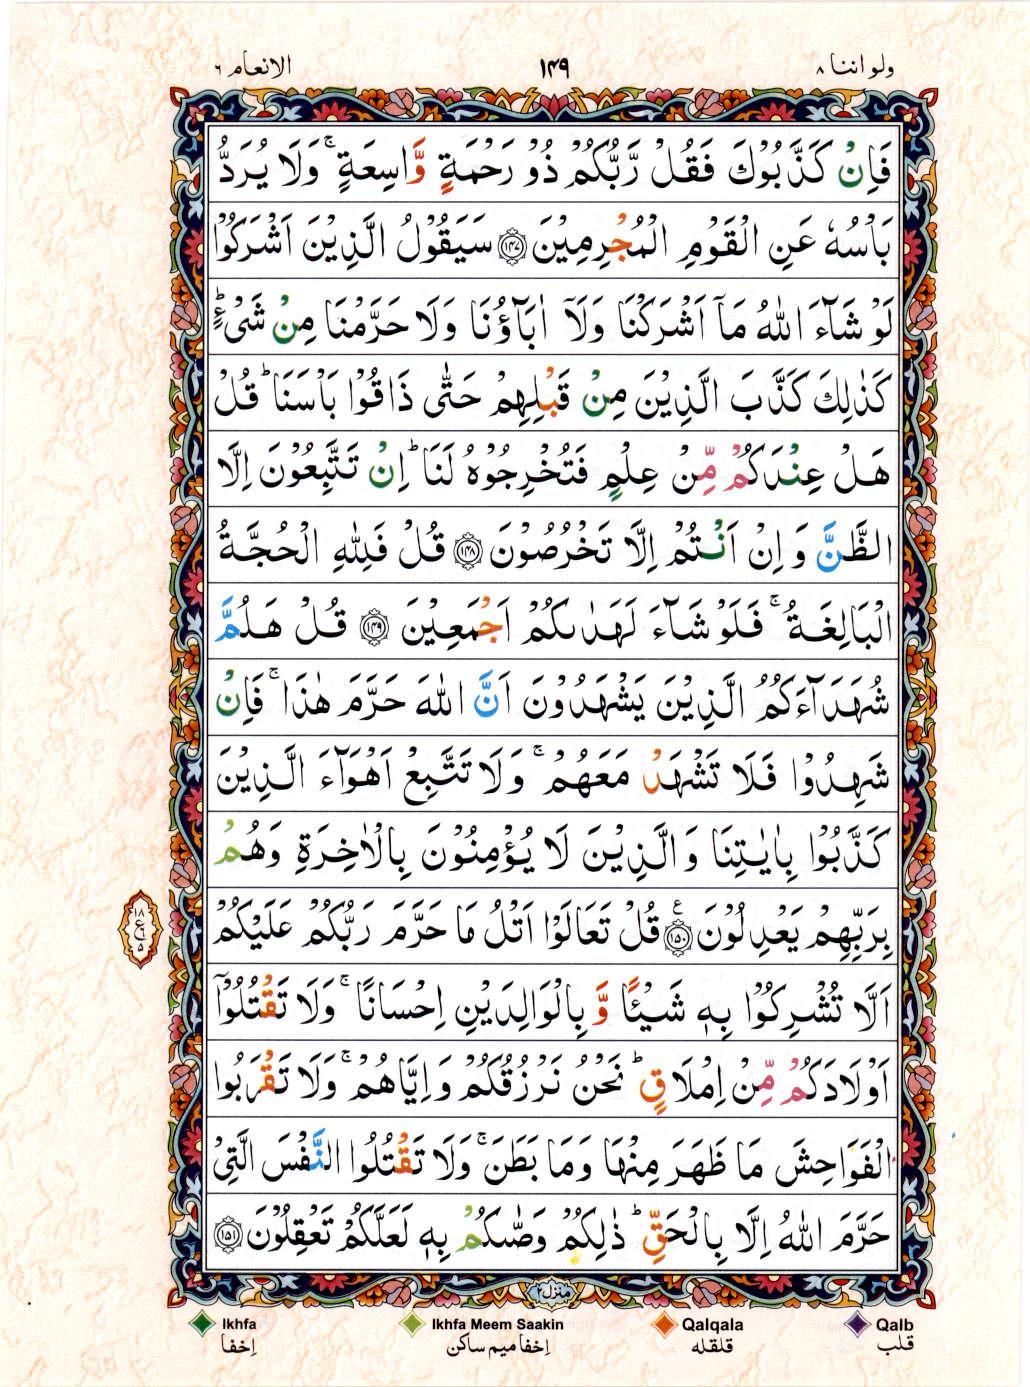 ولو اننا ۸
۱۴۹
الانعام ۶
فَاِنْ كَذَّبُوْكَ فَقُلْ رَّبُّكُمْ ذُوْ رَحْمَةٍ وَّاسِعَةٍ ۚ وَلَا يُرَدُّ
بَاْسُهٗ عَنِ الْقَوْمِ الْمُجْرِمِيْنَ ﴿۱۴۷﴾ سَيَقُوْلُ الَّذِيْنَ اَشْرَكُوْا
لَوْ شَآءَ اللّٰهُ مَاۤ اَشْرَكْنَا وَلَاۤ اٰبَآؤُنَا وَلَا حَرَّمْنَا مِنْ شَیْءٍ ؕ
كَذٰلِكَ كَذَّبَ الَّذِيْنَ مِنْ قَبْلِهِمْ حَتّٰى ذَاقُوْا بَاْسَنَا ؕ قُلْ
هَلْ عِنْدَكُمْ مِّنْ عِلْمٍ فَتُخْرِجُوْهُ لَنَا ؕ اِنْ تَتَّبِعُوْنَ اِلَّا
الظَّنَّ وَاِنْ اَنْتُمْ اِلَّا تَخْرُصُوْنَ ﴿۱۴۸﴾ قُلْ فَلِلّٰهِ الْحُجَّةُ
الْبَالِغَةُ ۚ فَلَوْ شَآءَ لَهَدٰىكُمْ اَجْمَعِيْنَ ﴿۱۴۹﴾ قُلْ هَلُمَّ
شُهَدَآءَكُمُ الَّذِيْنَ يَشْهَدُوْنَ اَنَّ اللّٰهَ حَرَّمَ هٰذَا ۚ فَاِنْ
شَهِدُوْا فَلَا تَشْهَدْ مَعَهُمْ ۚ وَلَا تَتَّبِعْ اَهْوَآءَ الَّذِيْنَ
كَذَّبُوْا بِاٰيٰتِنَا وَالَّذِيْنَ لَا يُؤْمِنُوْنَ بِالْاٰخِرَةِ وَهُمْ
بِرَبِّهِمْ يَعْدِلُوْنَ ﴿۱۵۰﴾ ع قُلْ تَعَالَوْا اَتْلُ مَا حَرَّمَ رَبُّكُمْ عَلَيْكُمْ
۱۸
ع
۵
اَلَّا تُشْرِكُوْا بِهٖ شَيْـًٔا وَّبِالْوَالِدَيْنِ اِحْسَانًا ۚ وَلَا تَقْتُلُوْۤا
اَوْلَادَكُمْ مِّنْ اِمْلَاقٍ ؕ نَحْنُ نَرْزُقُكُمْ وَاِيَّاهُمْ ۚ وَلَا تَقْرَبُوا
الْفَوَاحِشَ مَا ظَهَرَ مِنْهَا وَمَا بَطَنَ ۚ وَلَا تَقْتُلُوا النَّفْسَ الَّتِیْ
حَرَّمَ اللّٰهُ اِلَّا بِالْحَقِّ ؕ ذٰلِكُمْ وَصّٰىكُمْ بِهٖ لَعَلَّكُمْ تَعْقِلُوْنَ ﴿۱۵۱﴾
منزل ۲
Ikhfa
اِخفا
Ikhfa Meem Saakin
اِخفا میم ساکن
Qalqala
قلقلہ
Qalb
قلب